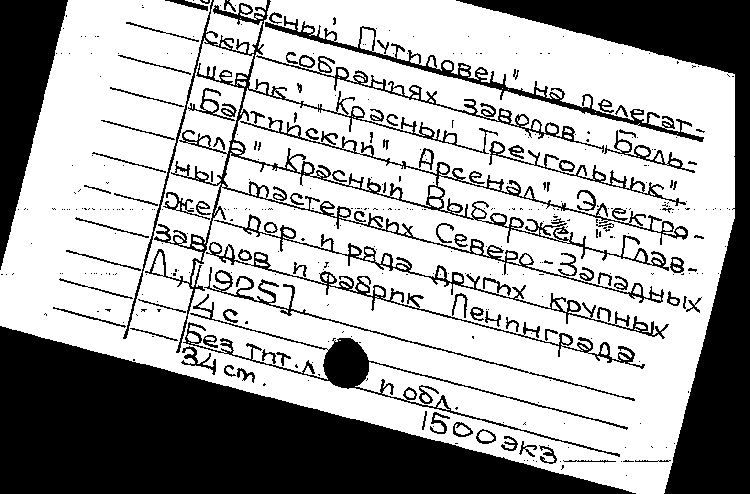 „Красный Путиловец", на делегат-
ских собраниях заводов: „Боль-
шевик", „Красный Треугольник",
„Балтийский", „Арсенал", „Электро-
сила", „Красный Выборжец", Глав-
ных мастерских Северо-Западных
жел. дор. и ряда других крупных
заводов и фабрик Ленинграда.
Л., [1925].
4 с.
Без тит. л. и обл.
34 см.
1500 экз.